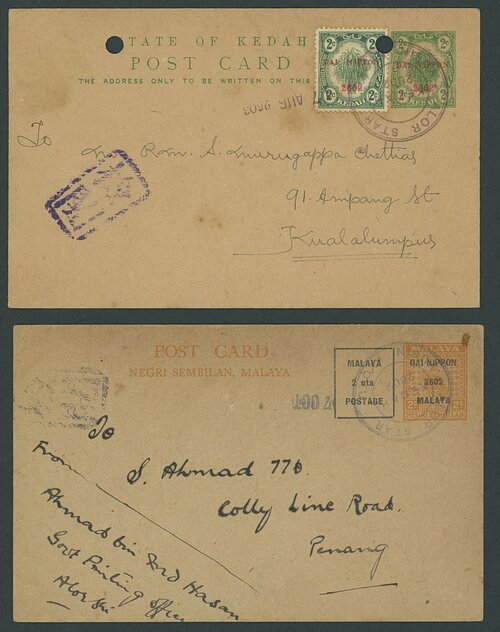 STATE OF KEDAH
POST CARD
THE ADDRESS ONLY TO BE WRITTEN ON THIS
2c 2c
DAI NIPPON
2602
2c KEDAH 2c
DAI NIPPON
2602
AUG 2603
ALOR STAR
To
Rom. S. Murugappa Chettias
91. Ampang St
Kualalumpus
POST CARD
NEGRI SEMBILAN, MALAYA
MALAYA
2 cts
POSTAGE
MALAYA
DAI NIPPON
2602
MALAYA
NEGRI SEMBILAN
STAR
To
S. Ahmad 770.
Colly Line Road.
Penang
From
Ahmad bin Md Hasan
Govt Printing Office
Alor Star